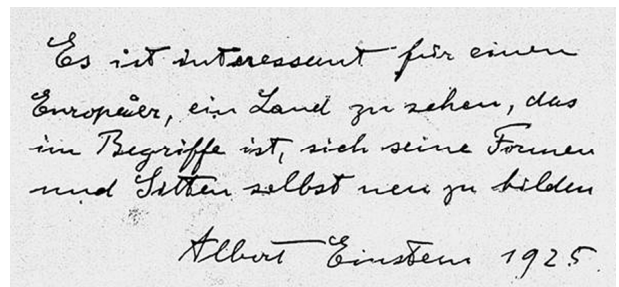 Es ist interessant für einen
Europäer, ein Land zu sehen, das
im Begriffe ist, sich seine Formen
und Sitten selbst neu zu bilden
Albert Einstein 1925.